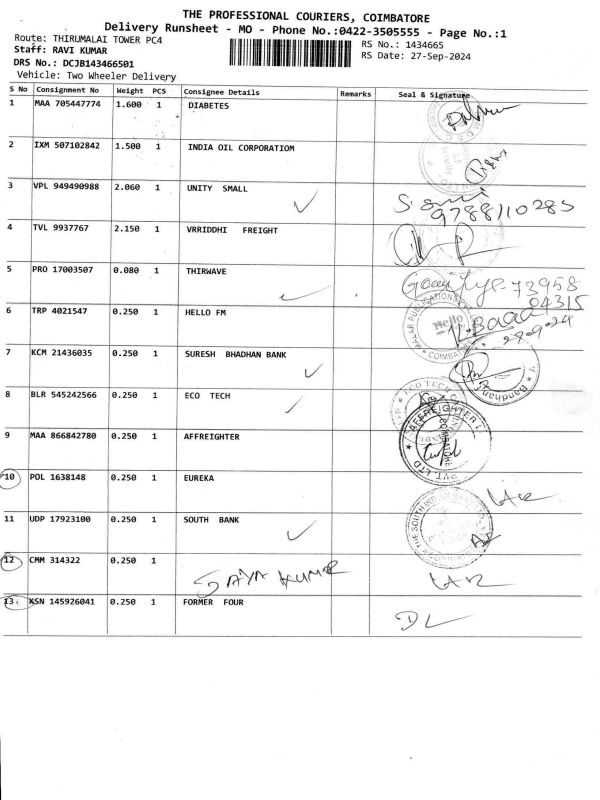 THE PROFESSIONAL COURIERS, COIMBATORE
Delivery Runsheet - MO - Phone No.:0422-3505555 - Page No.:1
Route: THIRUMALAI TOWER PC4
RS No.: 1434665
Staff: RAVI KUMAR
RS Date: 27-Sep-2024
DRS No.: DCJB143466501
Vehicle: Two Wheeler Delivery
S No Consignment No Weight PCS Consignee Details Remarks Seal & Signature
1 MAA 705447774 1.600 1 DIABETES
2 IXM 507102842 1.500 1 INDIA OIL CORPORATIOM
3 VPL 949490988 2.060 1 UNITY SMALL
9788110285
4 TVL 9937767 2.150 1 VRRIDDHI FREIGHT
5 PRO 17003507 0.080 1 THIRWAVE
73958
04315
6 TRP 4021547 0.250 1 HELLO FM
Hello
COIMBATORE
28-9-24
7 KCM 21436035 0.250 1 SURESH BHADHAN BANK
Bandhan
8 BLR 545242566 0.250 1 ECO TECH
ECO TECH
9 MAA 866842780 0.250 1 AFFREIGHTER
AFFREIGHTER
COIMBATORE
PVT. LTD
10 POL 1638148 0.250 1 EUREKA
11 UDP 17923100 0.250 1 SOUTH BANK
THE SOUTH INDIAN
12 CMM 314322 0.250 1
KUMAR
13 KSN 145926041 0.250 1 FORMER FOUR